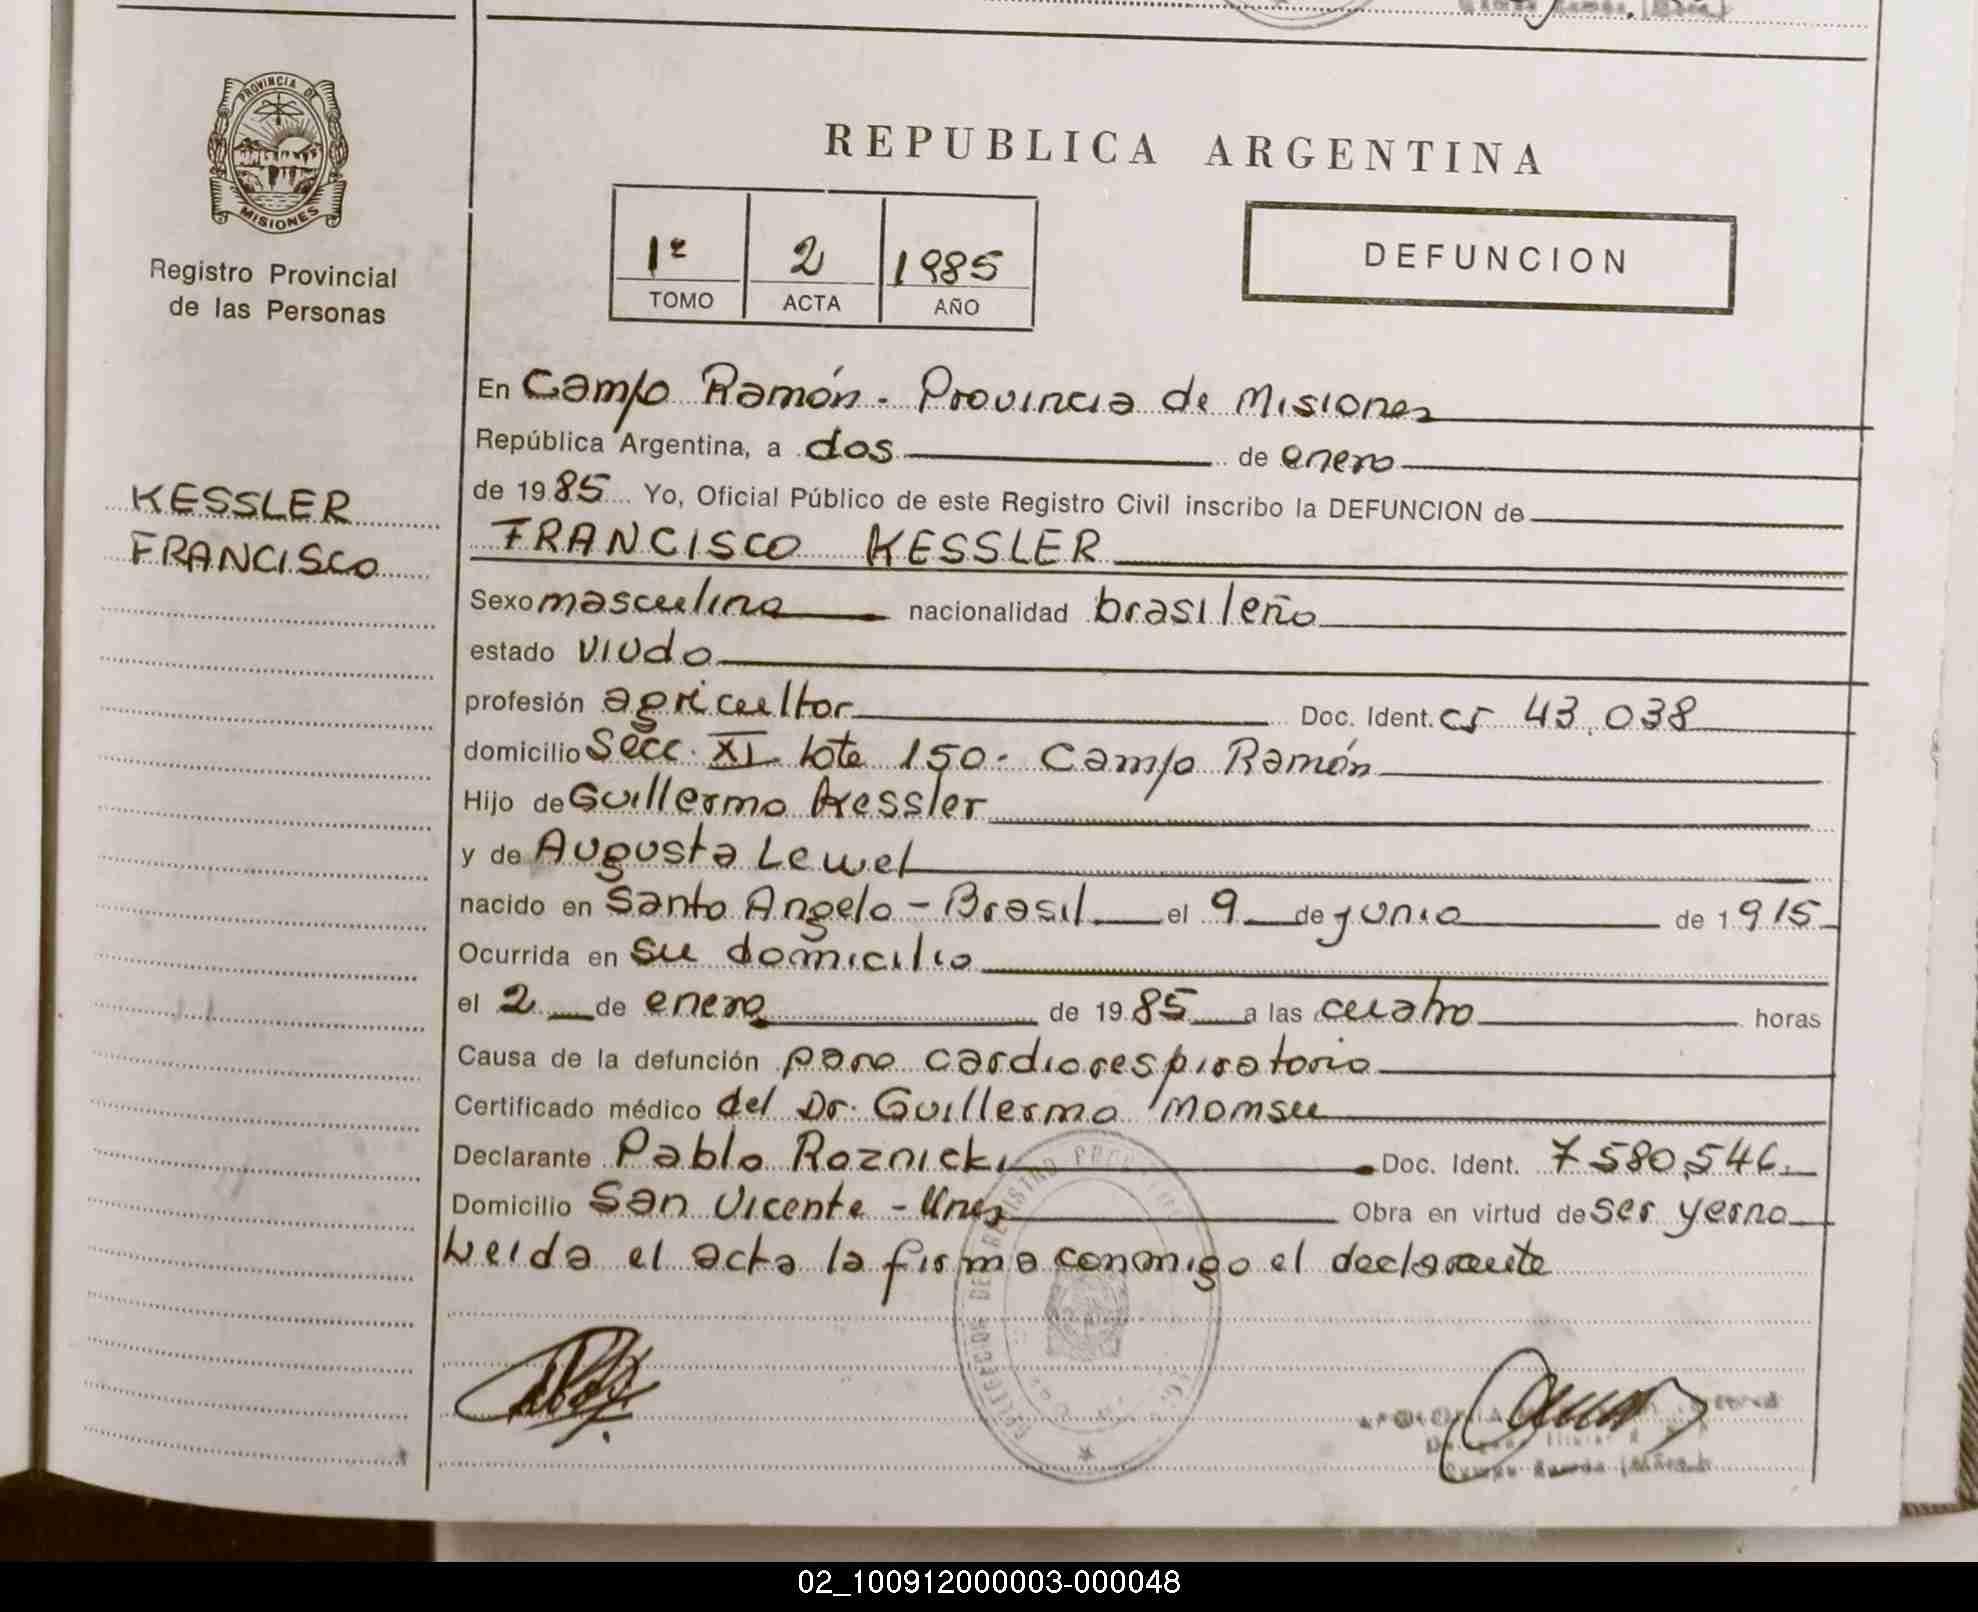 PROVINCIA DE
MISIONES
Registro Provincial
de las Personas
KESSLER
FRANCISCO
REPUBLICA ARGENTINA
1º 2 1985
TOMO ACTA AÑO
DEFUNCION
En Campo Ramón - Provincia de Misiones
República Argentina, a dos de enero
de 1985 Yo, Oficial Público de este Registro Civil inscribo la DEFUNCION de
FRANCISCO KESSLER
Sexo masculino nacionalidad brasileño
estado viudo
profesión agricultor Doc. Ident. CI 43.038
domicilio Secc. XI lote 150 - Campo Ramón
Hijo de Guillermo Kessler
y de Augusta Lewel
nacido en Santo Angelo - Brasil el 9 de junio de 1915
Ocurrida en su domicilio
el 2 de enero de 1985 a las cuatro horas
Causa de la defunción paro cardiorespiratorio
Certificado médico del Dr. Guillermo Momsu
Declarante Pablo Roznicki Doc. Ident. 7580.546
Domicilio San Vicente - Mnes Obra en virtud de ser yerno
Leida el acta la firma conmigo el declarante
02_100912000003-000048